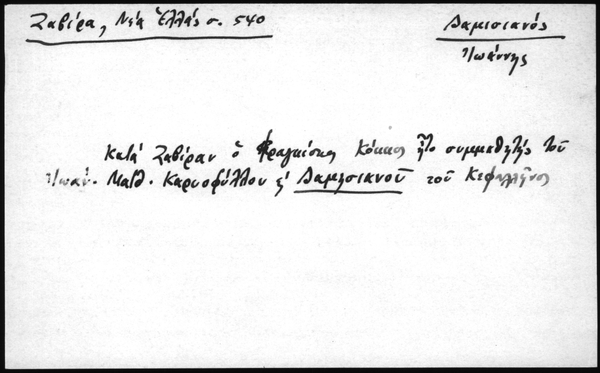 Ζαβίρα, Νέα Ἑλλάς σ. 540
Δαμισιανός
Ἰωάννης
Κατά Ζαβίραν ὁ Φραγκίσκος Κόκκος ἦτο συμμαθητής τοῦ
Ἰωάν. Ματθ. Καρυοφύλλου κ' Δαμισιανοῦ τοῦ Κεφαλλῆνος